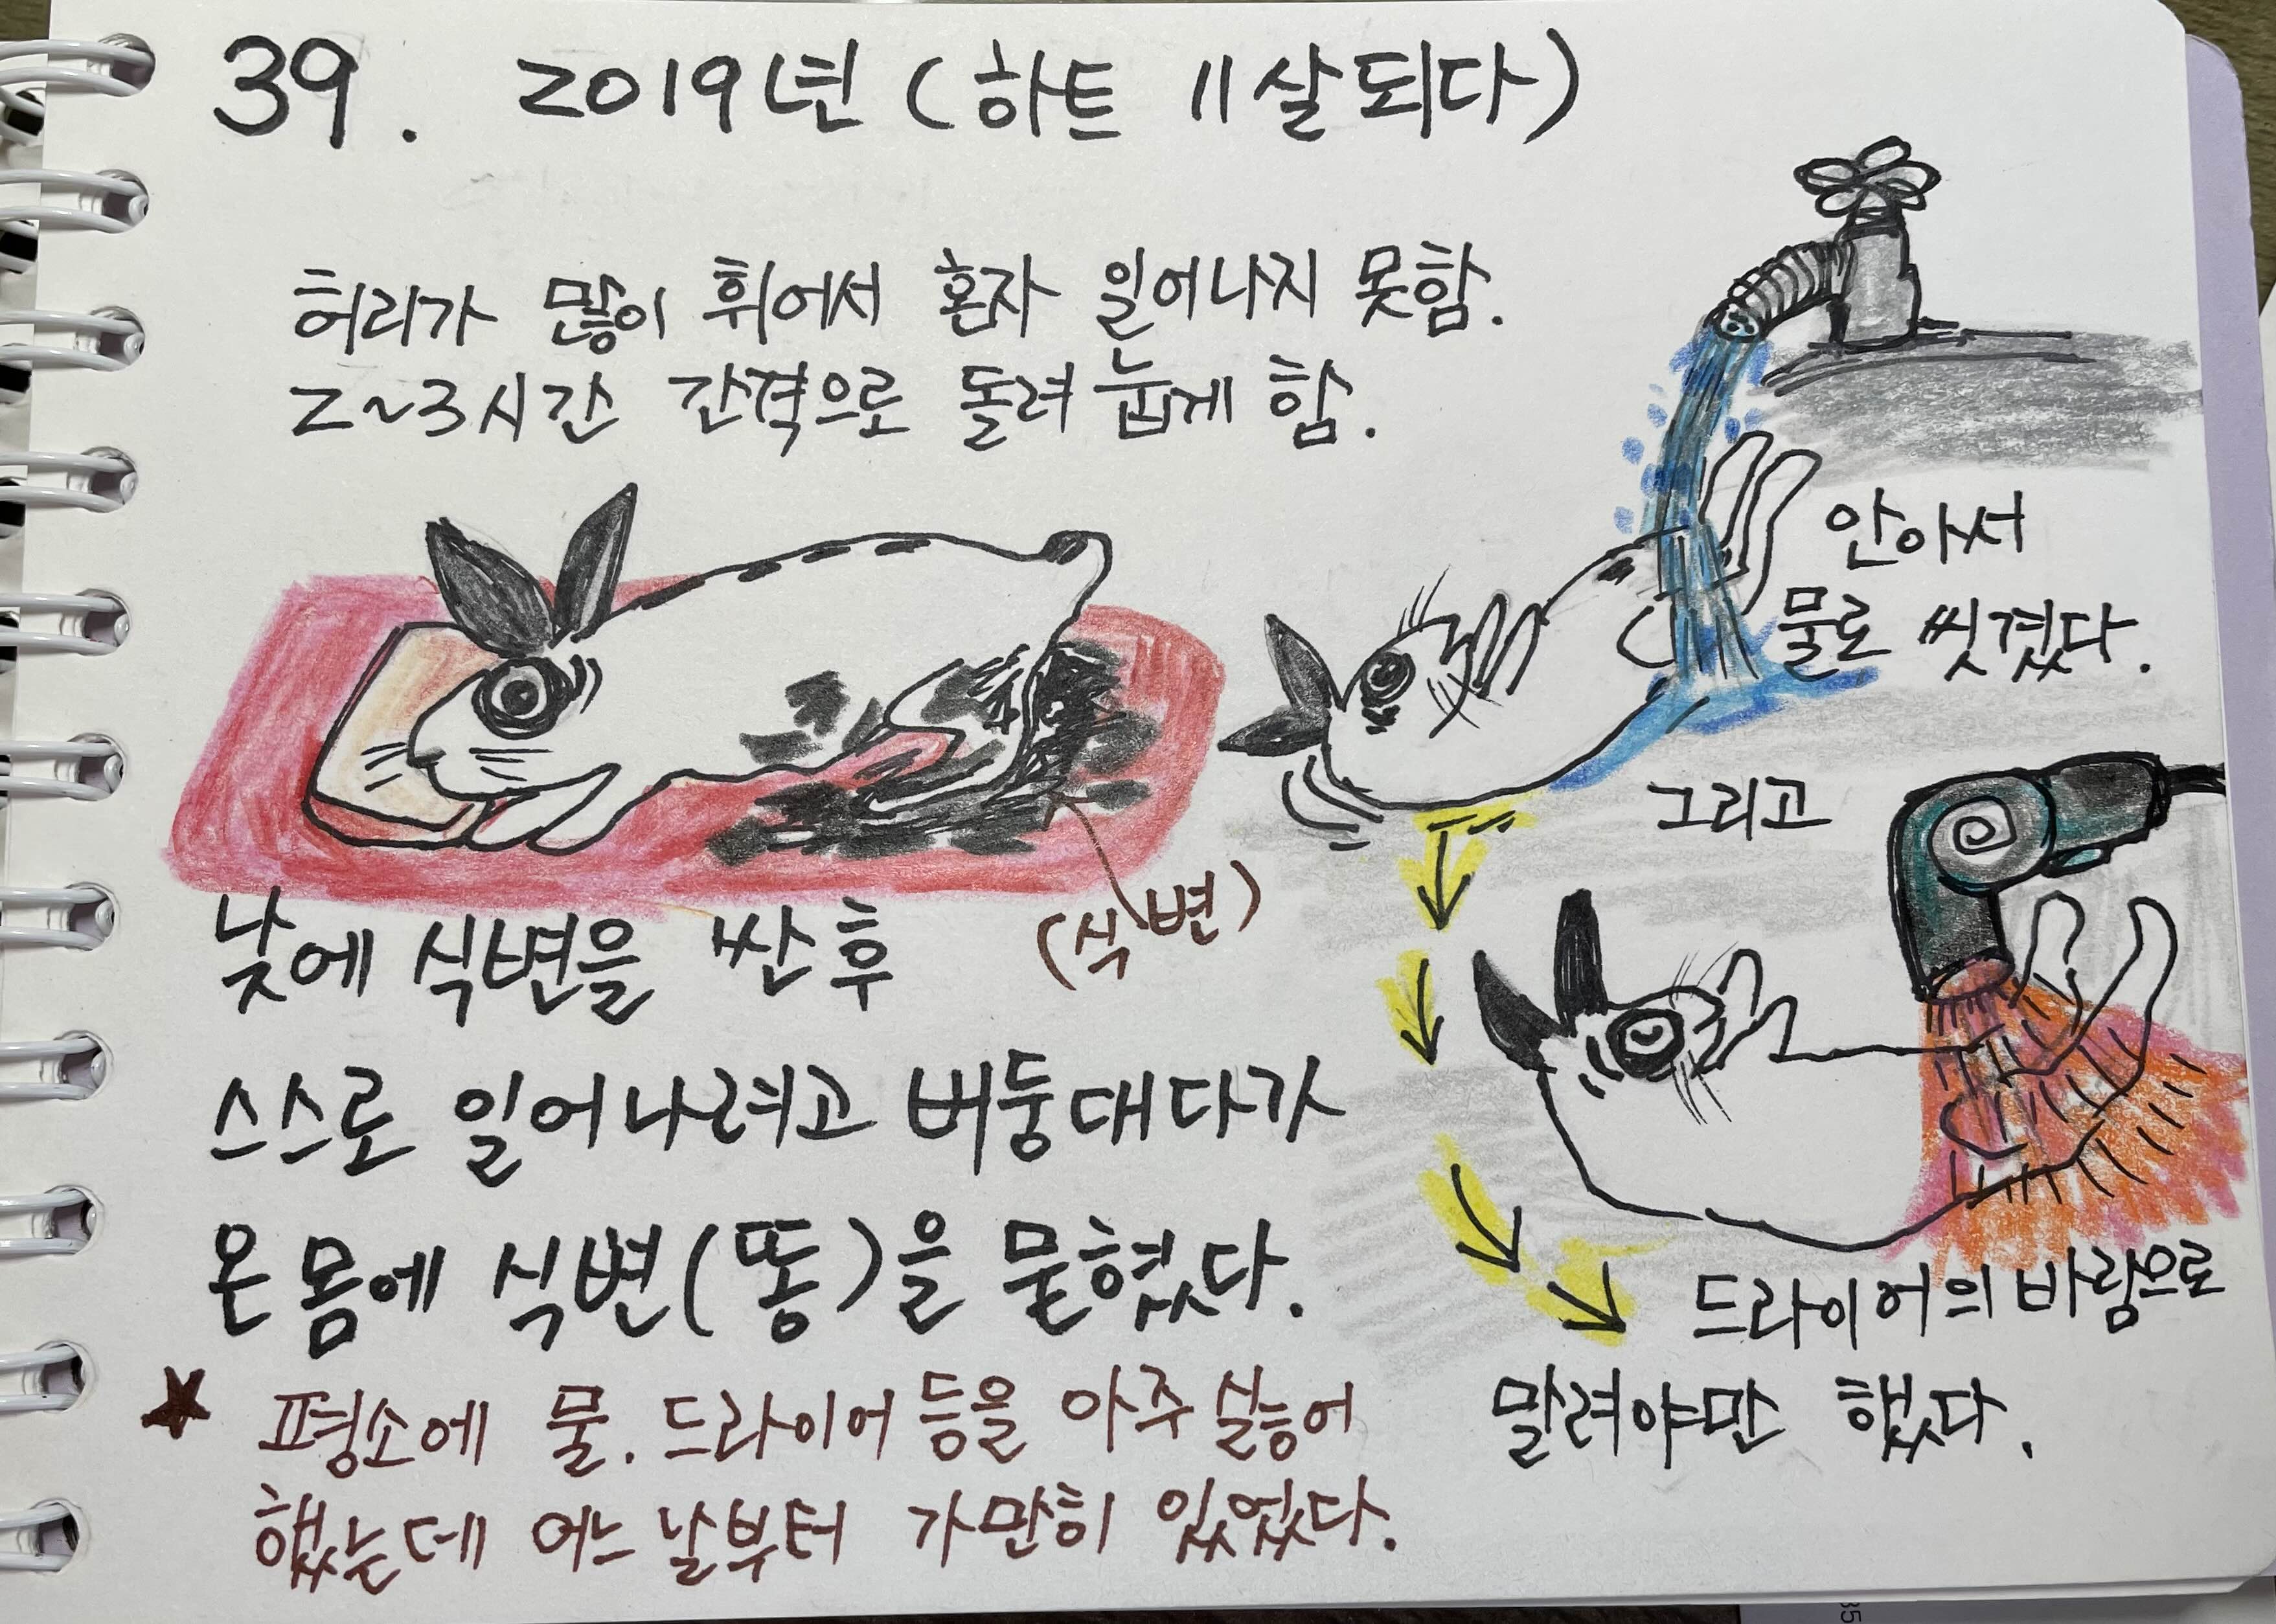 39. 2019년 (하트 11살되다)
허리가 많이 휘어서 혼자 일어나지 못함.
2~3시간 간격으로 돌려 눕게 함.
안아서
물로 씻겼다.
그리고
(식변)
낮에 식변을 싼 후
스스로 일어나려고 버둥대다가
온 몸에 식변(똥)을 뭍혔다.
드라이어의 바람으로
말려야만 했다.
★ 평소에 물. 드라이어 등을 아주 싫어
했는데 어느 날부터 가만히 있었다.
35